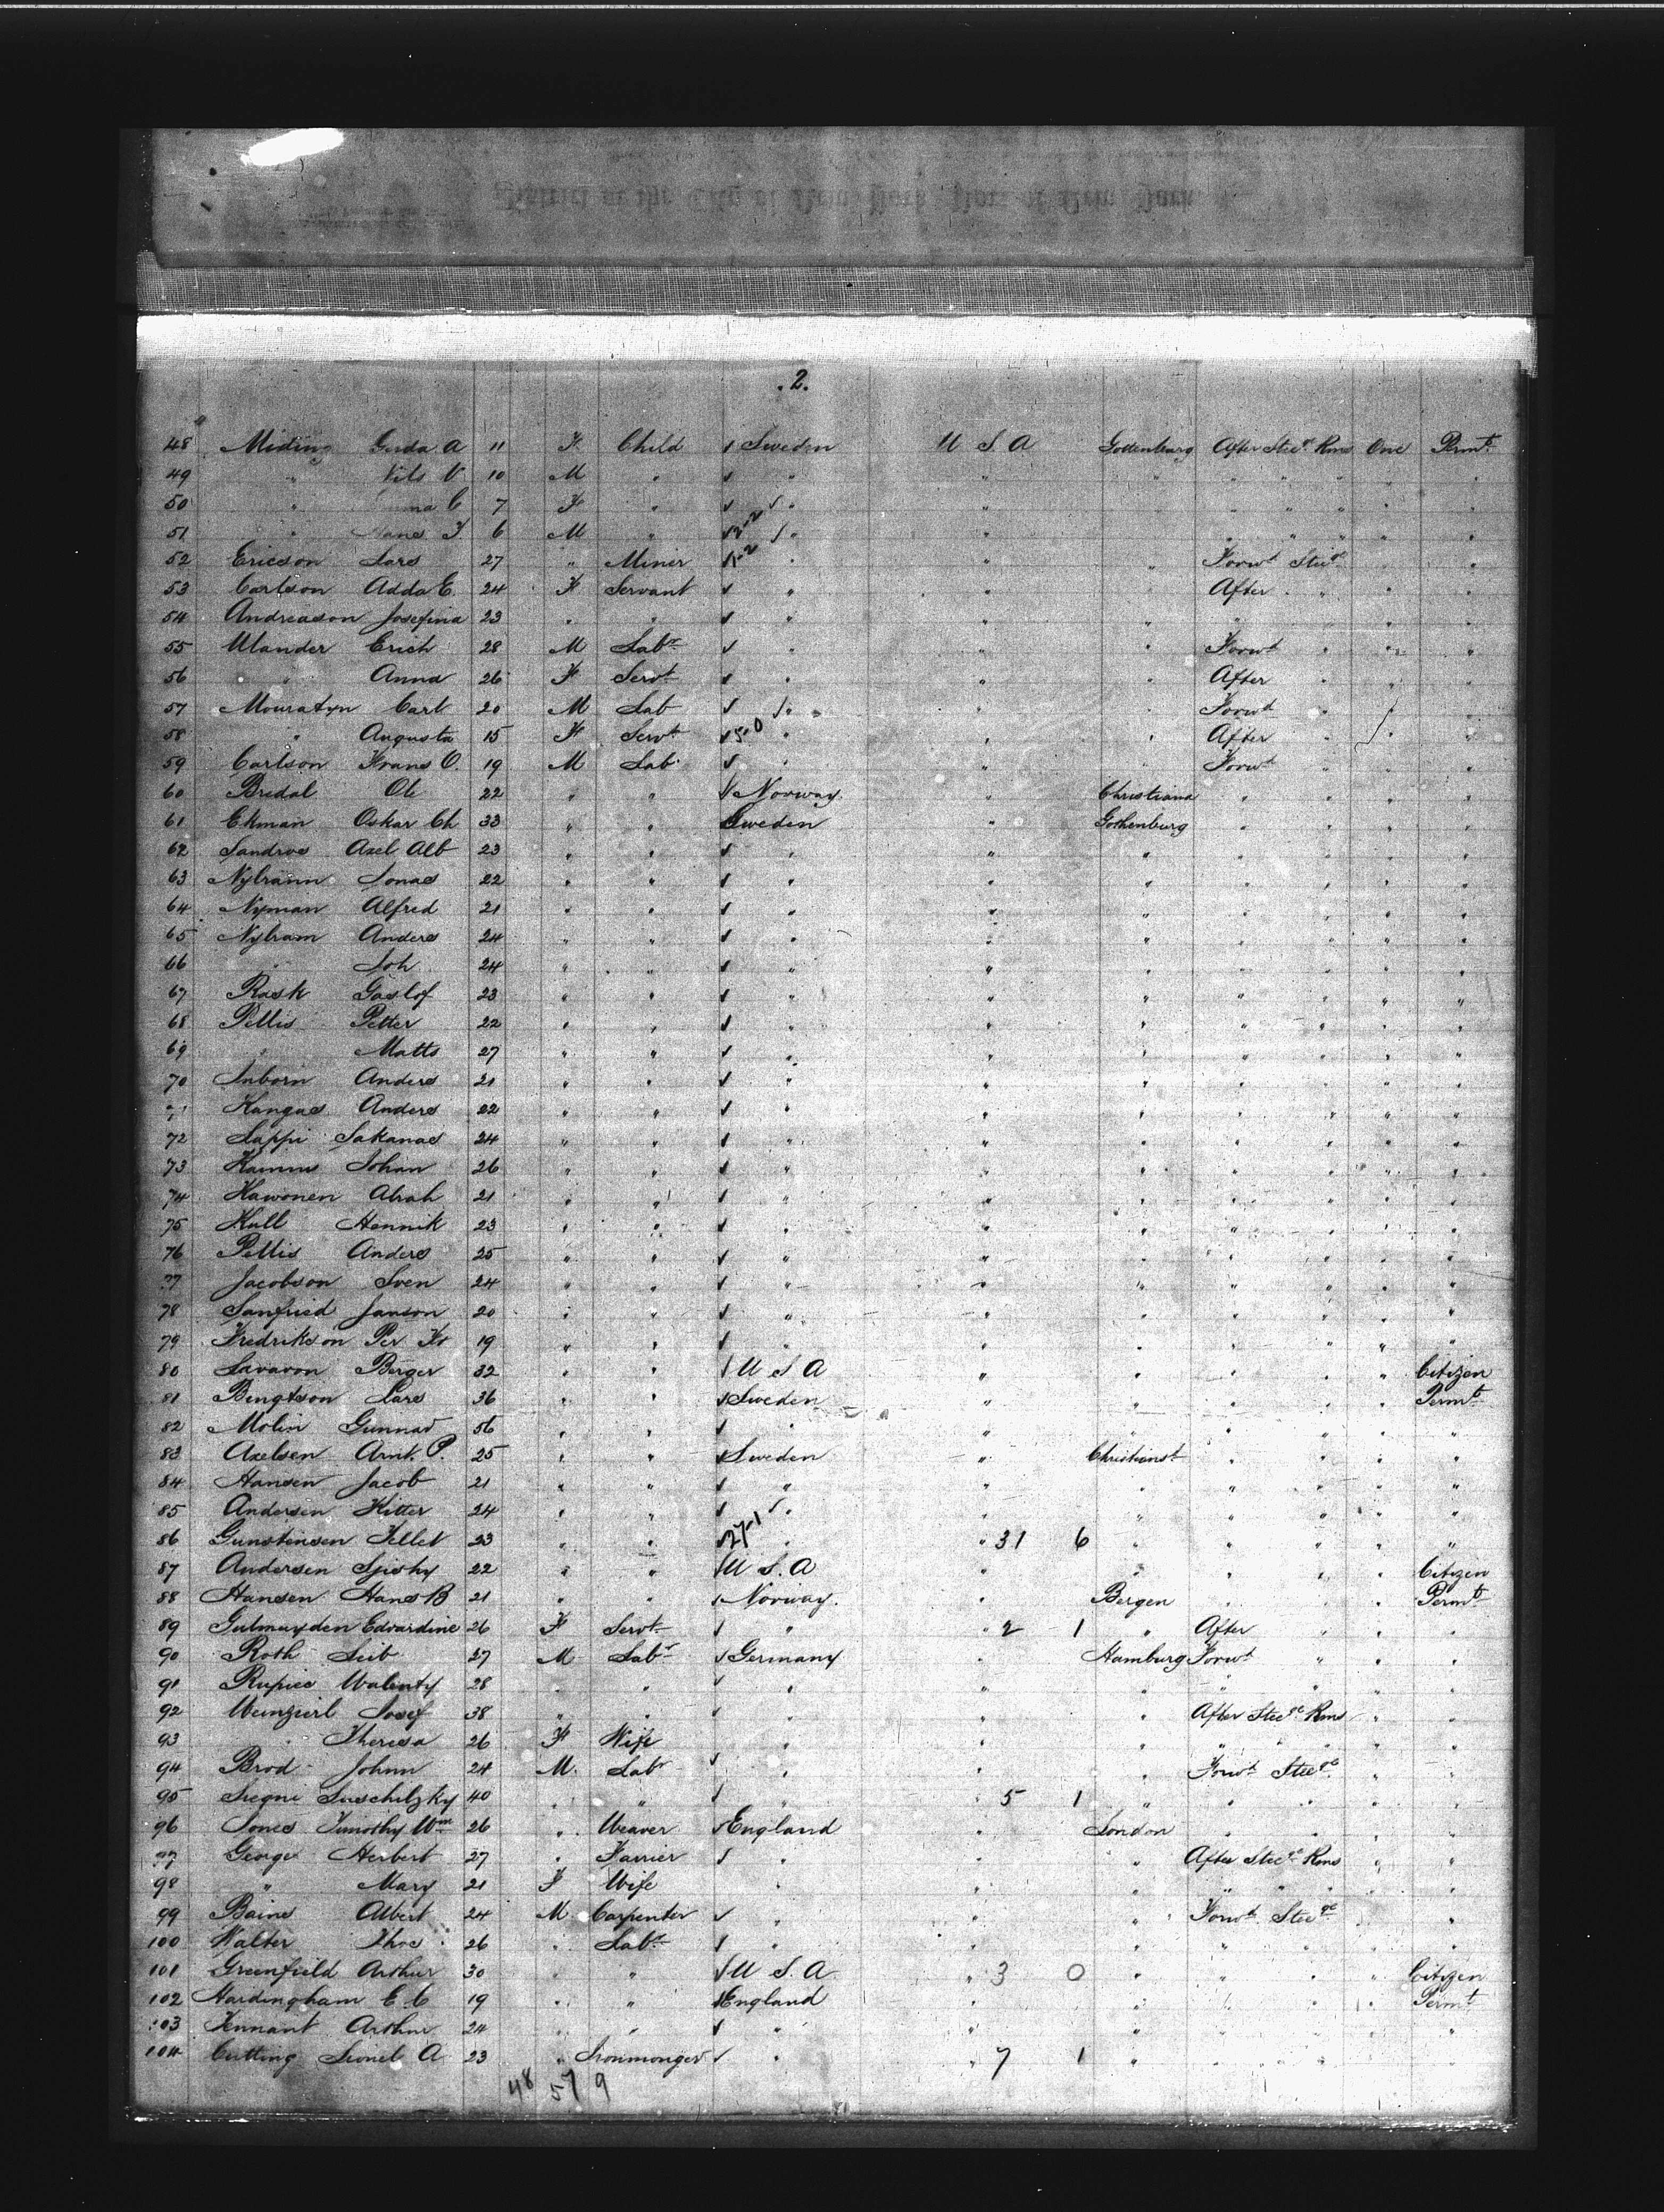 .2.
48 Miding Gerda A 11 F Child Sweden U S A Gottenburg After Steege Rms One Permt
49 " Nils V 10 M " " " " " " " " "
50 " C 7 F " " " " " " " "
51 " Hans F 6 M " 2-2 " " " " " " "
52 Ericson Lars 27 " Miner 1-2 " " " Forwd Steege "
53 Carlson Adda E. 24 F Servant " " " After " "
54 Andreason Josefina 23 " " " " " " " "
55 Ulander Erich 28 M Labr " " " Forwd " " "
56 " Anna 26 F Servt " " " After " " "
57 Mouratyn Carl 20 M Lab " " " Forwd " " "
58 " Augusta 15 F Servt 5-0 " " " After " " "
59 Carlson Frans O. 19 M Lab " " " Forwd " " "
60 Bredal Ole 22 " " Norway " Christiana " " " "
61 Ekman Oskar Ch 33 " " Sweden " Gothenburg " " " "
62 Landros Axel Alb 23 " " " " " " " " "
63 Nybrann Jonas 22 " " " " " " " " "
64 Nyman Alfred 21 " " " " " " " " "
65 Nybram Anders 24 " " " " " " " " "
66 " Joh 24 " " " " " " " " "
67 Rask Gaslof 23 " " " " " " " " "
68 Pellis Petter 22 " " " " " " " " "
69 " Matts 27 " " " " " " " " "
70 Inborn Anders 21 " " " " " " " " "
71 Kangas Anders 22 " " " " " " " " "
72 Lappi Sakanas 24 " " " " " " " " "
73 Johan 26 " " " " " " " " "
74 Hawonen Abrah 21 " " " " " " " " "
75 Kull Hennik 23 " " " " " " " " "
76 Pellis Anders 25 " " " " " " " " "
77 Jacobson Sven 24 " " " " " " " " "
78 Sanfried Janson 20 " " " " " " " " "
79 Fredrikson Per Fr 19 " " " " " " " " "
80 Berger 32 " " U S A " " " " " Citizen
81 Bengtson Lars 36 " " Sweden " " " " " Permt
82 Molin Gunnar 56 " " " " " " " " "
83 Axelsen Arnt. P. 25 " " Sweden " Christianst " " " "
84 Hansen Jacob 21 " " " " " " " " "
85 Andersen Kitter 24 " " " " " " " " "
86 Gunstensen Tellet 23 " " 27-1 " " 31 6 " " " " "
87 Andersen 22 " " U S. A " " " " " Citizen
88 Hansen Hans B 21 " " Norway. " Bergen " " " Permt
89 Gulmayden Edvardine 26 F Servt " " 2 1 " After " " "
90 Roth Leib 27 M Labr Germany " Hamburg Forwd " " "
91 Rupiec Walenty 28 " " " " " " " " "
92 Weinzierl Josef 38 " " " " " After Steege Rms " "
93 " Theresa 26 F Wife " " " " " " " "
94 Brod Johnn 24 M. Labr " " " Forwd Steege " "
95 Luschilzky 40 " " " " 5 1 " " " " "
96 Jones Timothy Wm 26 " Weaver England " London " " " "
97 George Herbert 27 " Farrier " " " After Steege Rms " "
98 " Mary 21 F Wife " " " " " " " "
99 Bains Albert 24 M. Carpenter " " " Forwd Steege "
100 Walter Thos 26 " Labr " " " " " " "
101 Greenfield Arthur 30 " " U S. A " 3 0 " " " " Citizen
102 Hardingham E C 19 " " England " " " " " Permt
103 Tennant Arthur 24 " " " " " " " " "
104 Cutting Lionel A 23 " Ironmonger " " 7 1 " " " " "
48 57 9